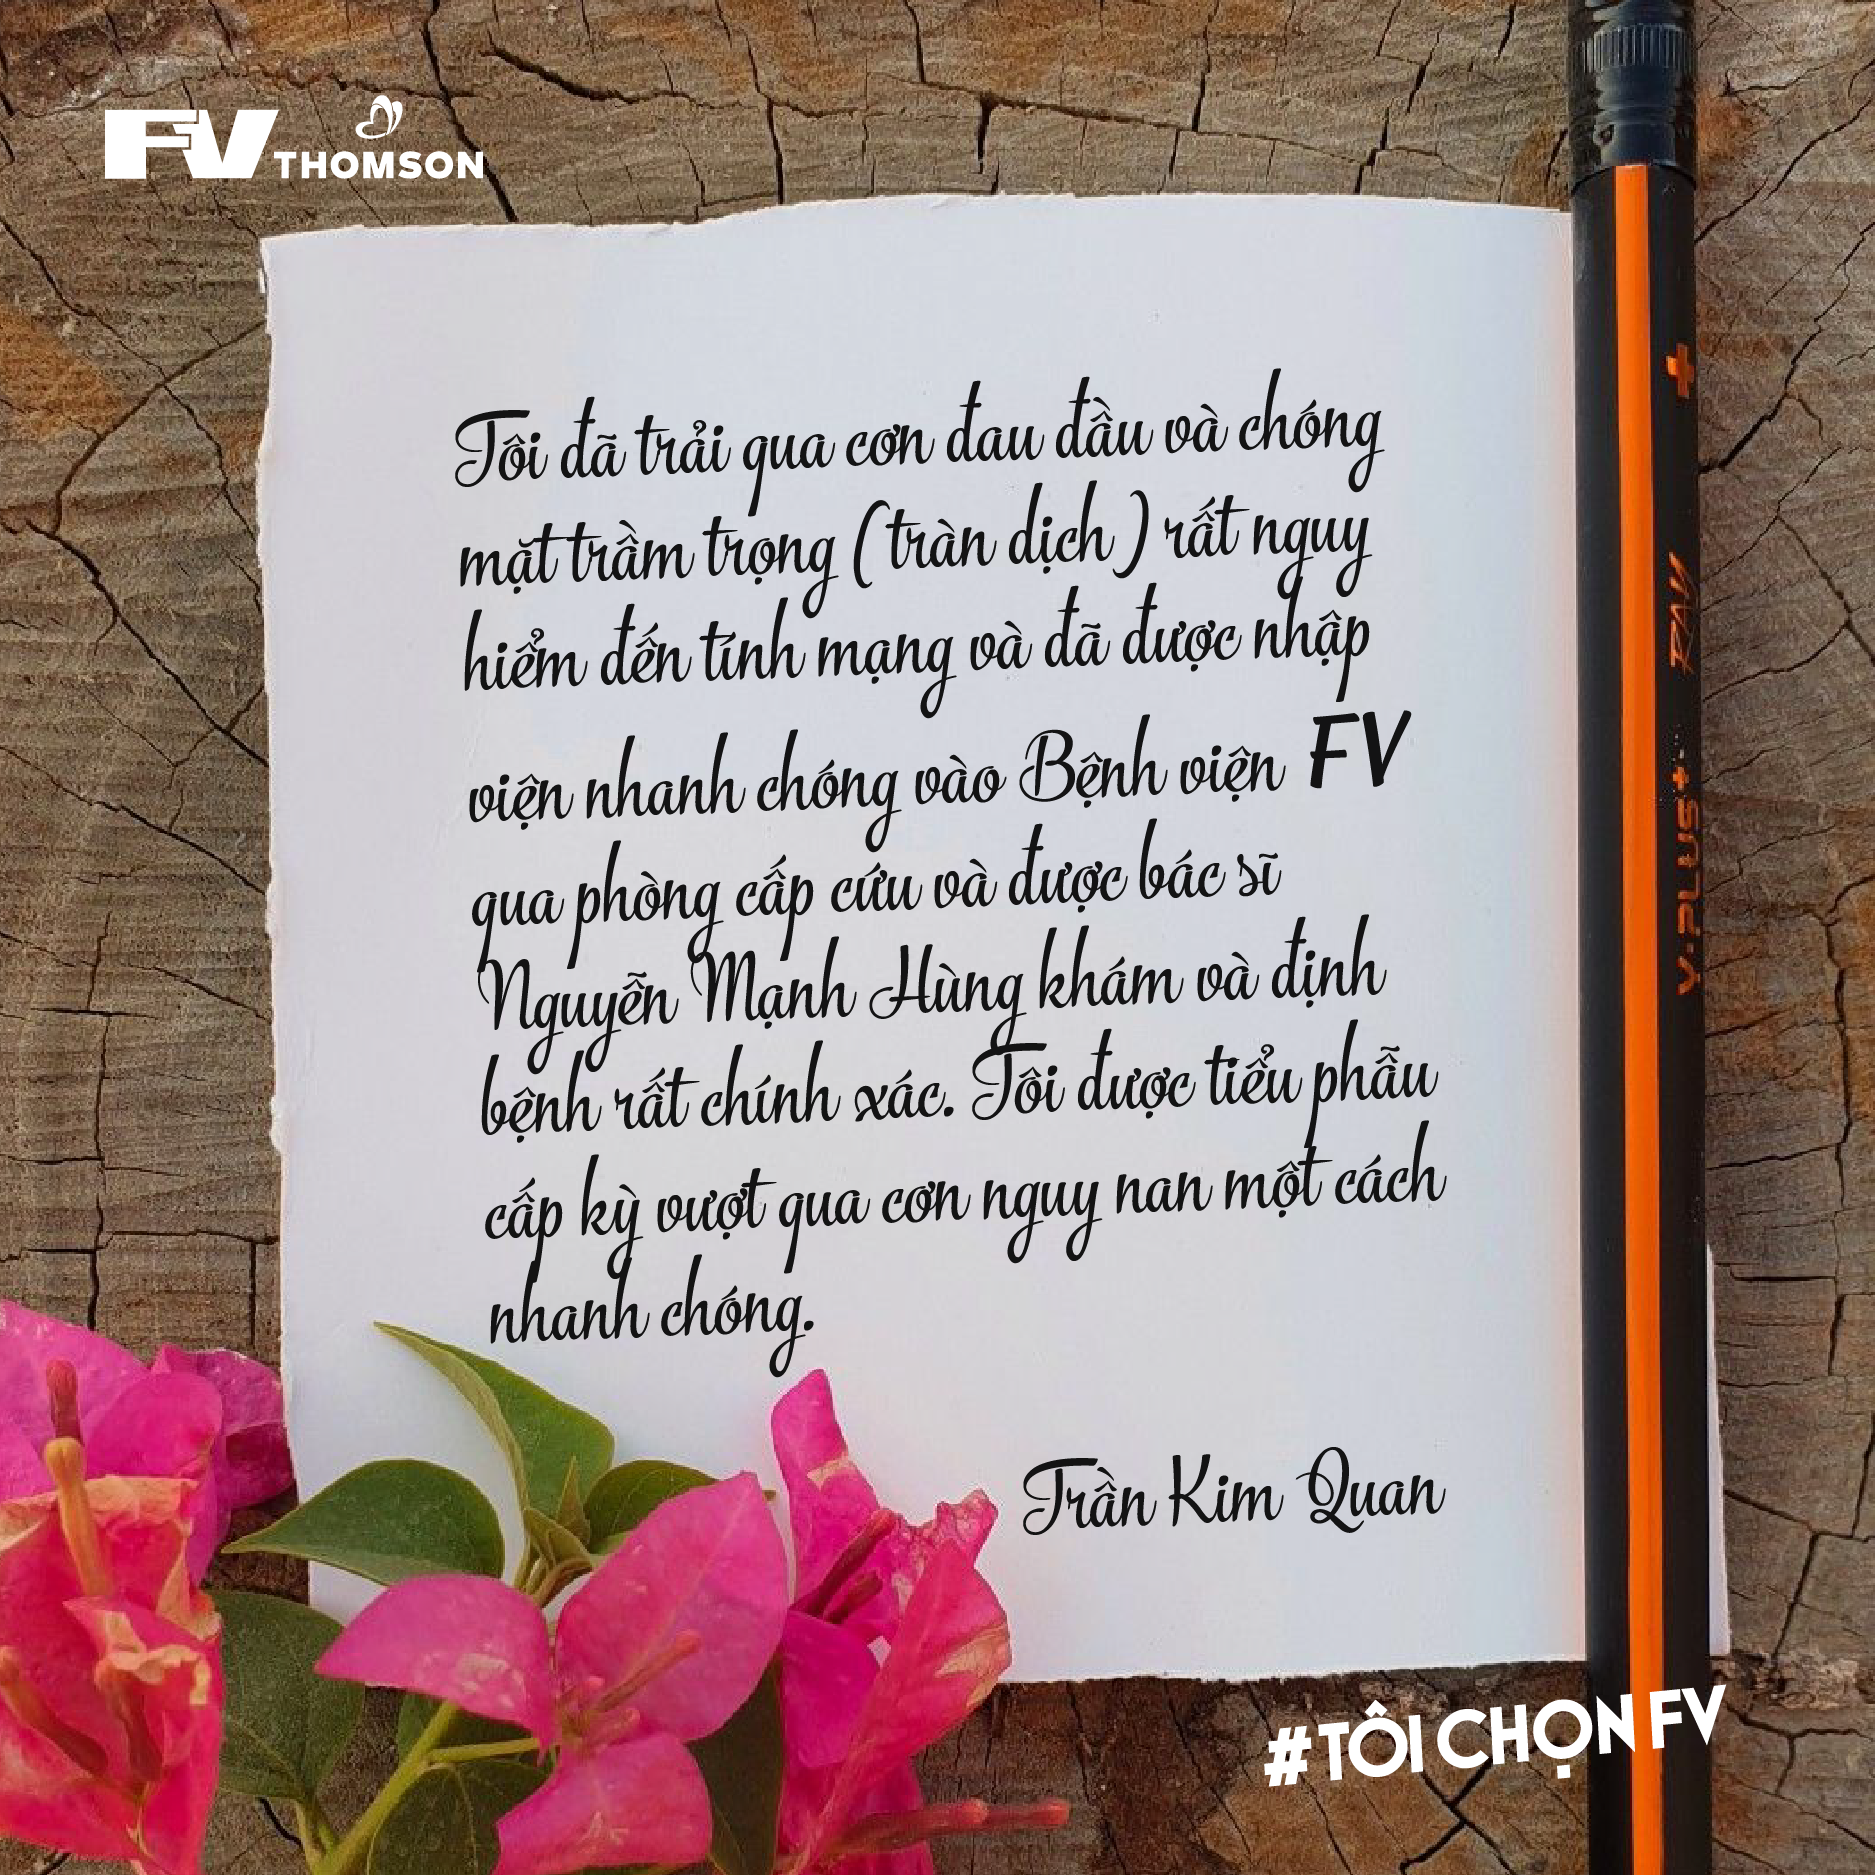 FV THOMSON
Tôi đã trải qua cơn đau đầu và chóng
mặt trầm trọng (tràn dịch) rất nguy
hiểm đến tính mạng và đã được nhập
viện nhanh chóng vào Bệnh viện FV
qua phòng cấp cứu và được bác sĩ
Nguyễn Mạnh Hùng khám và định
bệnh rất chính xác. Tôi được tiểu phẫu
cấp kỳ vượt qua cơn nguy nan một cách
nhanh chóng.
Trần Kim Quan
#TÔI CHỌN FV
Y.PLUS+